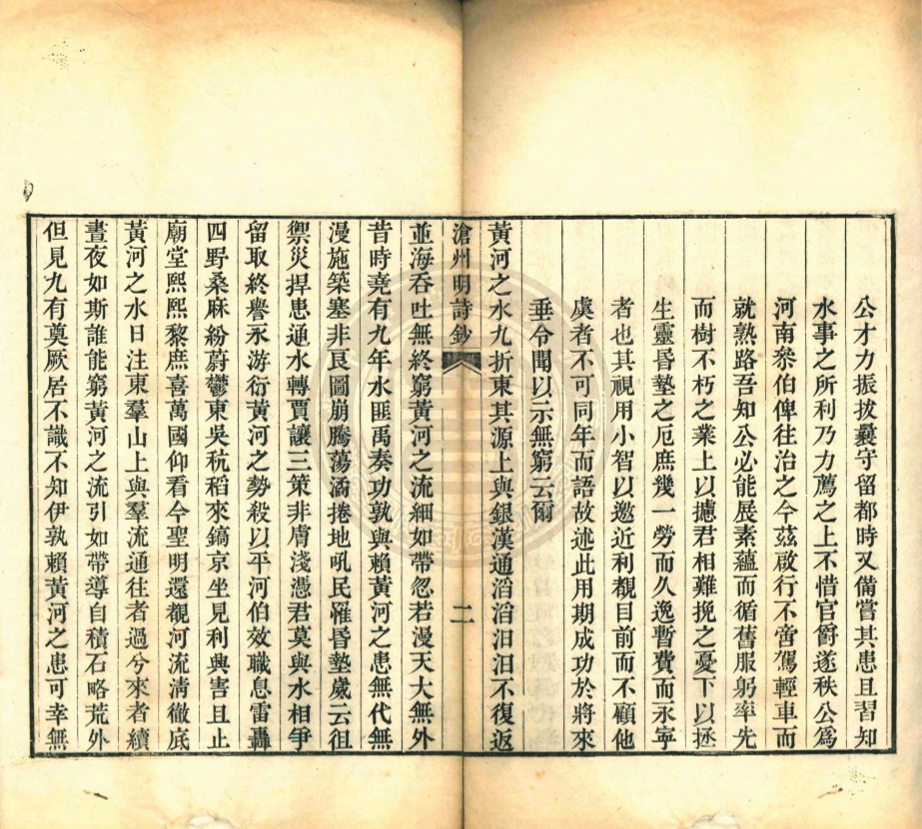 公才力振拔曩守留都時又備嘗其患且習知
水事之所利乃力薦之上不惜官爵遂秩公爲
河南叅伯俾往治之今茲啟行不啻駕輕車而
就熟路吾知公必能展素蘊而循舊服躬率先
而樹不朽之業上以攄君相難挽之憂下以拯
生靈昏墊之厄庶幾一勞而久逸暫費而永寧
者也其視用小智以邀近利覩目前而不顧他
虞者不可同年而語故述此用期成功於將來
垂令聞以示無窮云爾
黃河之水九折東其源上與銀漢通滔滔汩汩不復返
滄州明詩鈔 二
並海吞吐無終窮黃河之流細如帶忽若漫天大無外
昔時堯有九年水匪禹奏功孰與賴黃河之患無代無
漫施築塞非良圖崩騰蕩潏捲地吼民罹昏墊歲云徂
禦災捍患通水轉賈讓三策非膚淺憑君莫與水相爭
留取終譽永游衍黃河之勢殺以平河伯效職息雷轟
四野桑麻紛蔚鬱東吳秔稻來鎬京坐見利興害且止
廟堂熙熙黎庶喜萬國仰看今聖明還覩河流淸徹底
黃河之水日注東羣山上與羣流通往者過兮來者續
晝夜如斯誰能窮黃河之流引如帶導自積石略荒外
但見九有奠厥居不識不知伊孰賴黃河之患可幸無